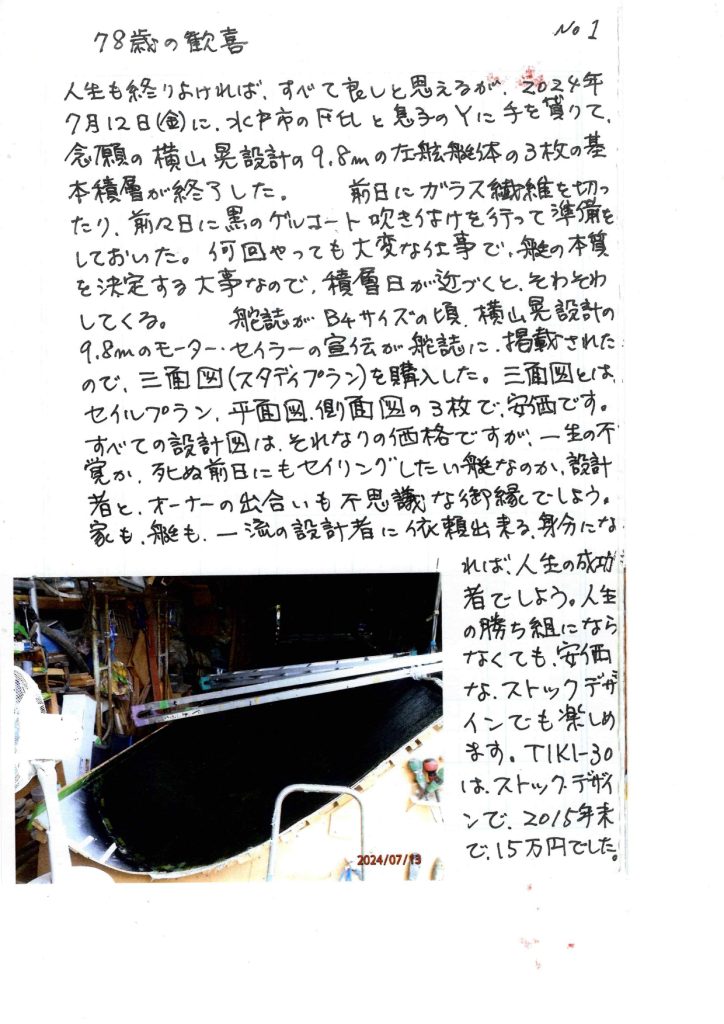 No 1
78歳の歓喜
人生も終りよければ、すべて良しと思えるが、2024年
7月12日(金)に、水戸市のF氏と息子のYに手を貸りて、
念願の横山晃設計の9.8mの左舷艇体の3枚の基
本積層が終了した。 前日にガラス繊維を切っ
たり、前々日に黒のゲルコート吹き付けを行って準備を
しておいた。何回やっても大変な仕事で、艇の本質
を決定する大事なので、積層日が近づくと、そわそわ
してくる。 舵誌がB4サイズの頃、横山晃設計の
9.8mのモーター・セイラーの宣伝が舵誌に、掲載された
ので、三面図(スタディプラン)を購入した。三面図とは、
セイルプラン、平面図、側面図の3枚で、安価です。
すべての設計図は、それなりの価格ですが、一生の不
覚か、死ぬ前日にもセイリングしたい艇なのか、設計
者と、オーナーの出合いも不思議な御縁でしょう。
家も、艇も、一流の設計者に依頼出来る、身分にな
れば、人生の成功
者でしょう。人生
の勝ち組になら
なくても、安価
な、ストックデザ
インでも楽しめ
ます。TIKI-30
は、ストック・デザイ
ンで、2015年末
で、15万円でした。
2024/07/13